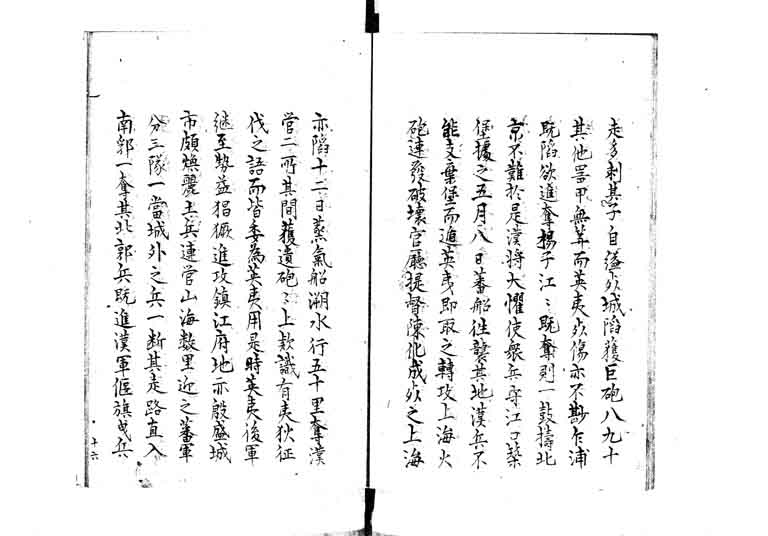 走多刺其子自縊死城陷獲巨砲八九十
其他器甲無算而英夷死傷亦不尠乍浦
既陷欲進奪揚子江〻既奪則一鼓擣北
京不難於是漢將大懼使衆兵守江口築
堡據之五月八日蕃船徃襲其地漢兵不
能支棄堡而進英夷即取之轉攻上海火
砲速發破壞官廳提督陳化成死之上海
亦陷十二日蒸氣船溯水行五十里奪漢
營二所其間獲遺砲〻上款識有夷狄征
伐之語而皆委為英夷用是時英夷後軍
継至勢益猖獗進攻鎮江府地亦殷盛城
市頗煥麗土兵連营山海數里近之蕃軍
分三隊一當城外之兵一断其走路直入
南郭一奪其北郭兵既進漢軍偃旗曳兵
十六